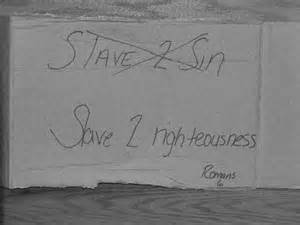 STave 2 Sin
Slave 2 righteousness
Romans
6